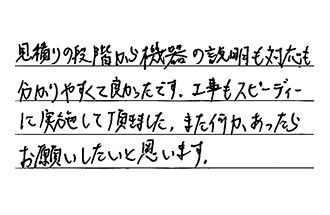 見積りの段階から機器の説明も対応も
分かりやすくて良かったです。工事もスピーディー
に実施して頂きました。また何か、あったら
お願いしたいと思います。